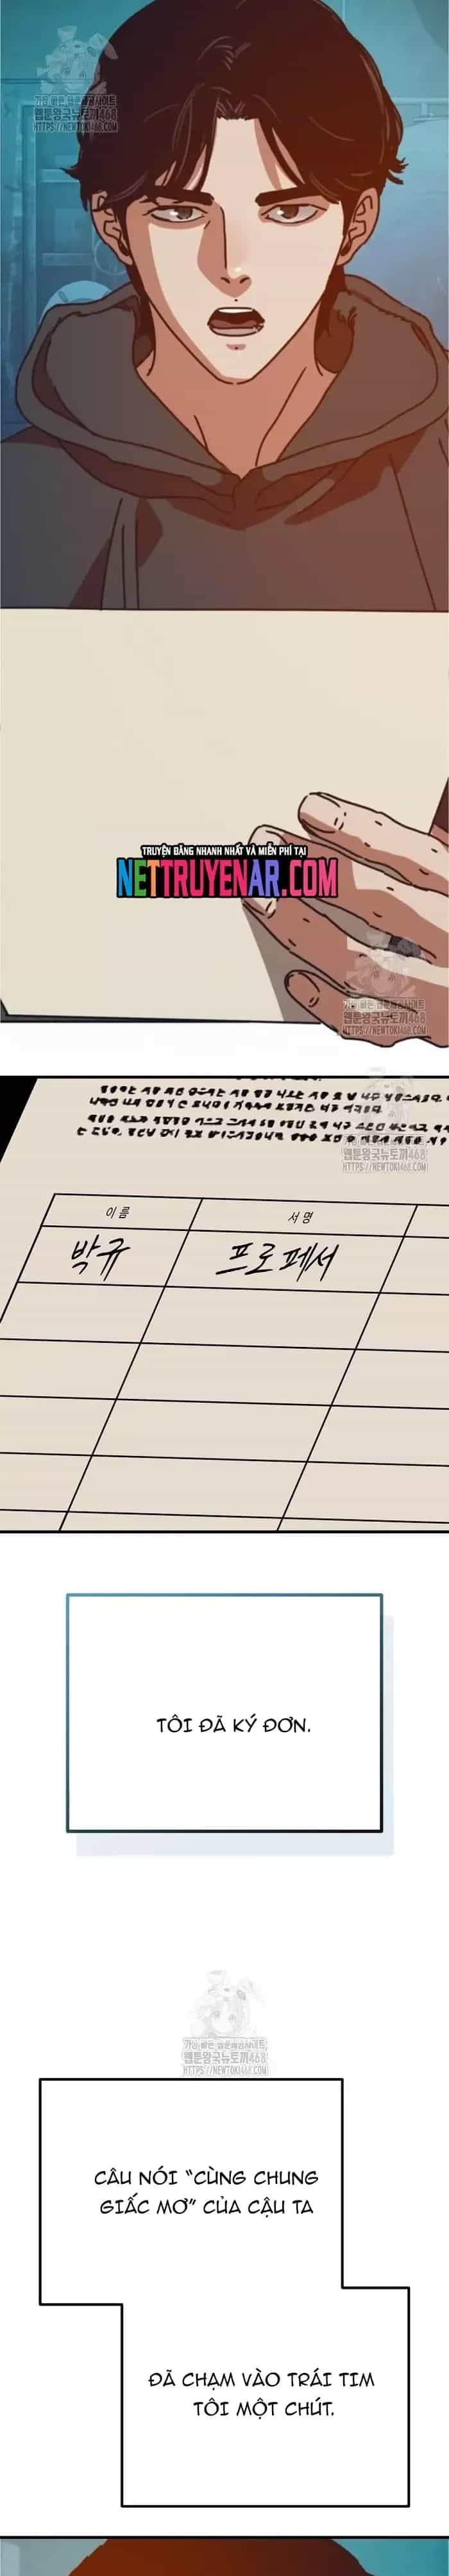 가장 빠른 웹툰제공사이트
웹툰왕국뉴토끼468
HTTPS://NEWTOKI468.COM
TRUYỆN ĐĂNG NHANH NHẤT VÀ MIỄN PHÍ TẠI
NETTRUYENAR.COM
가장 빠른 웹툰제공사이트
웹툰왕국뉴토끼468
HTTPS://NEWTOKI468.COM
웹툰왕국뉴토끼468
HTTPS://NEWTOKI468.COM
이름 서명
박규 프로페서
TÔI ĐÃ KÝ ĐƠN.
가장 빠른 웹툰제공사이트
웹툰왕국뉴토끼468
HTTPS://NEWTOKI468.COM
CÂU NÓI "CÙNG CHUNG
GIẤC MƠ" CỦA CẬU TA
ĐÃ CHẠM VÀO TRÁI TIM
TÔI MỘT CHÚT.